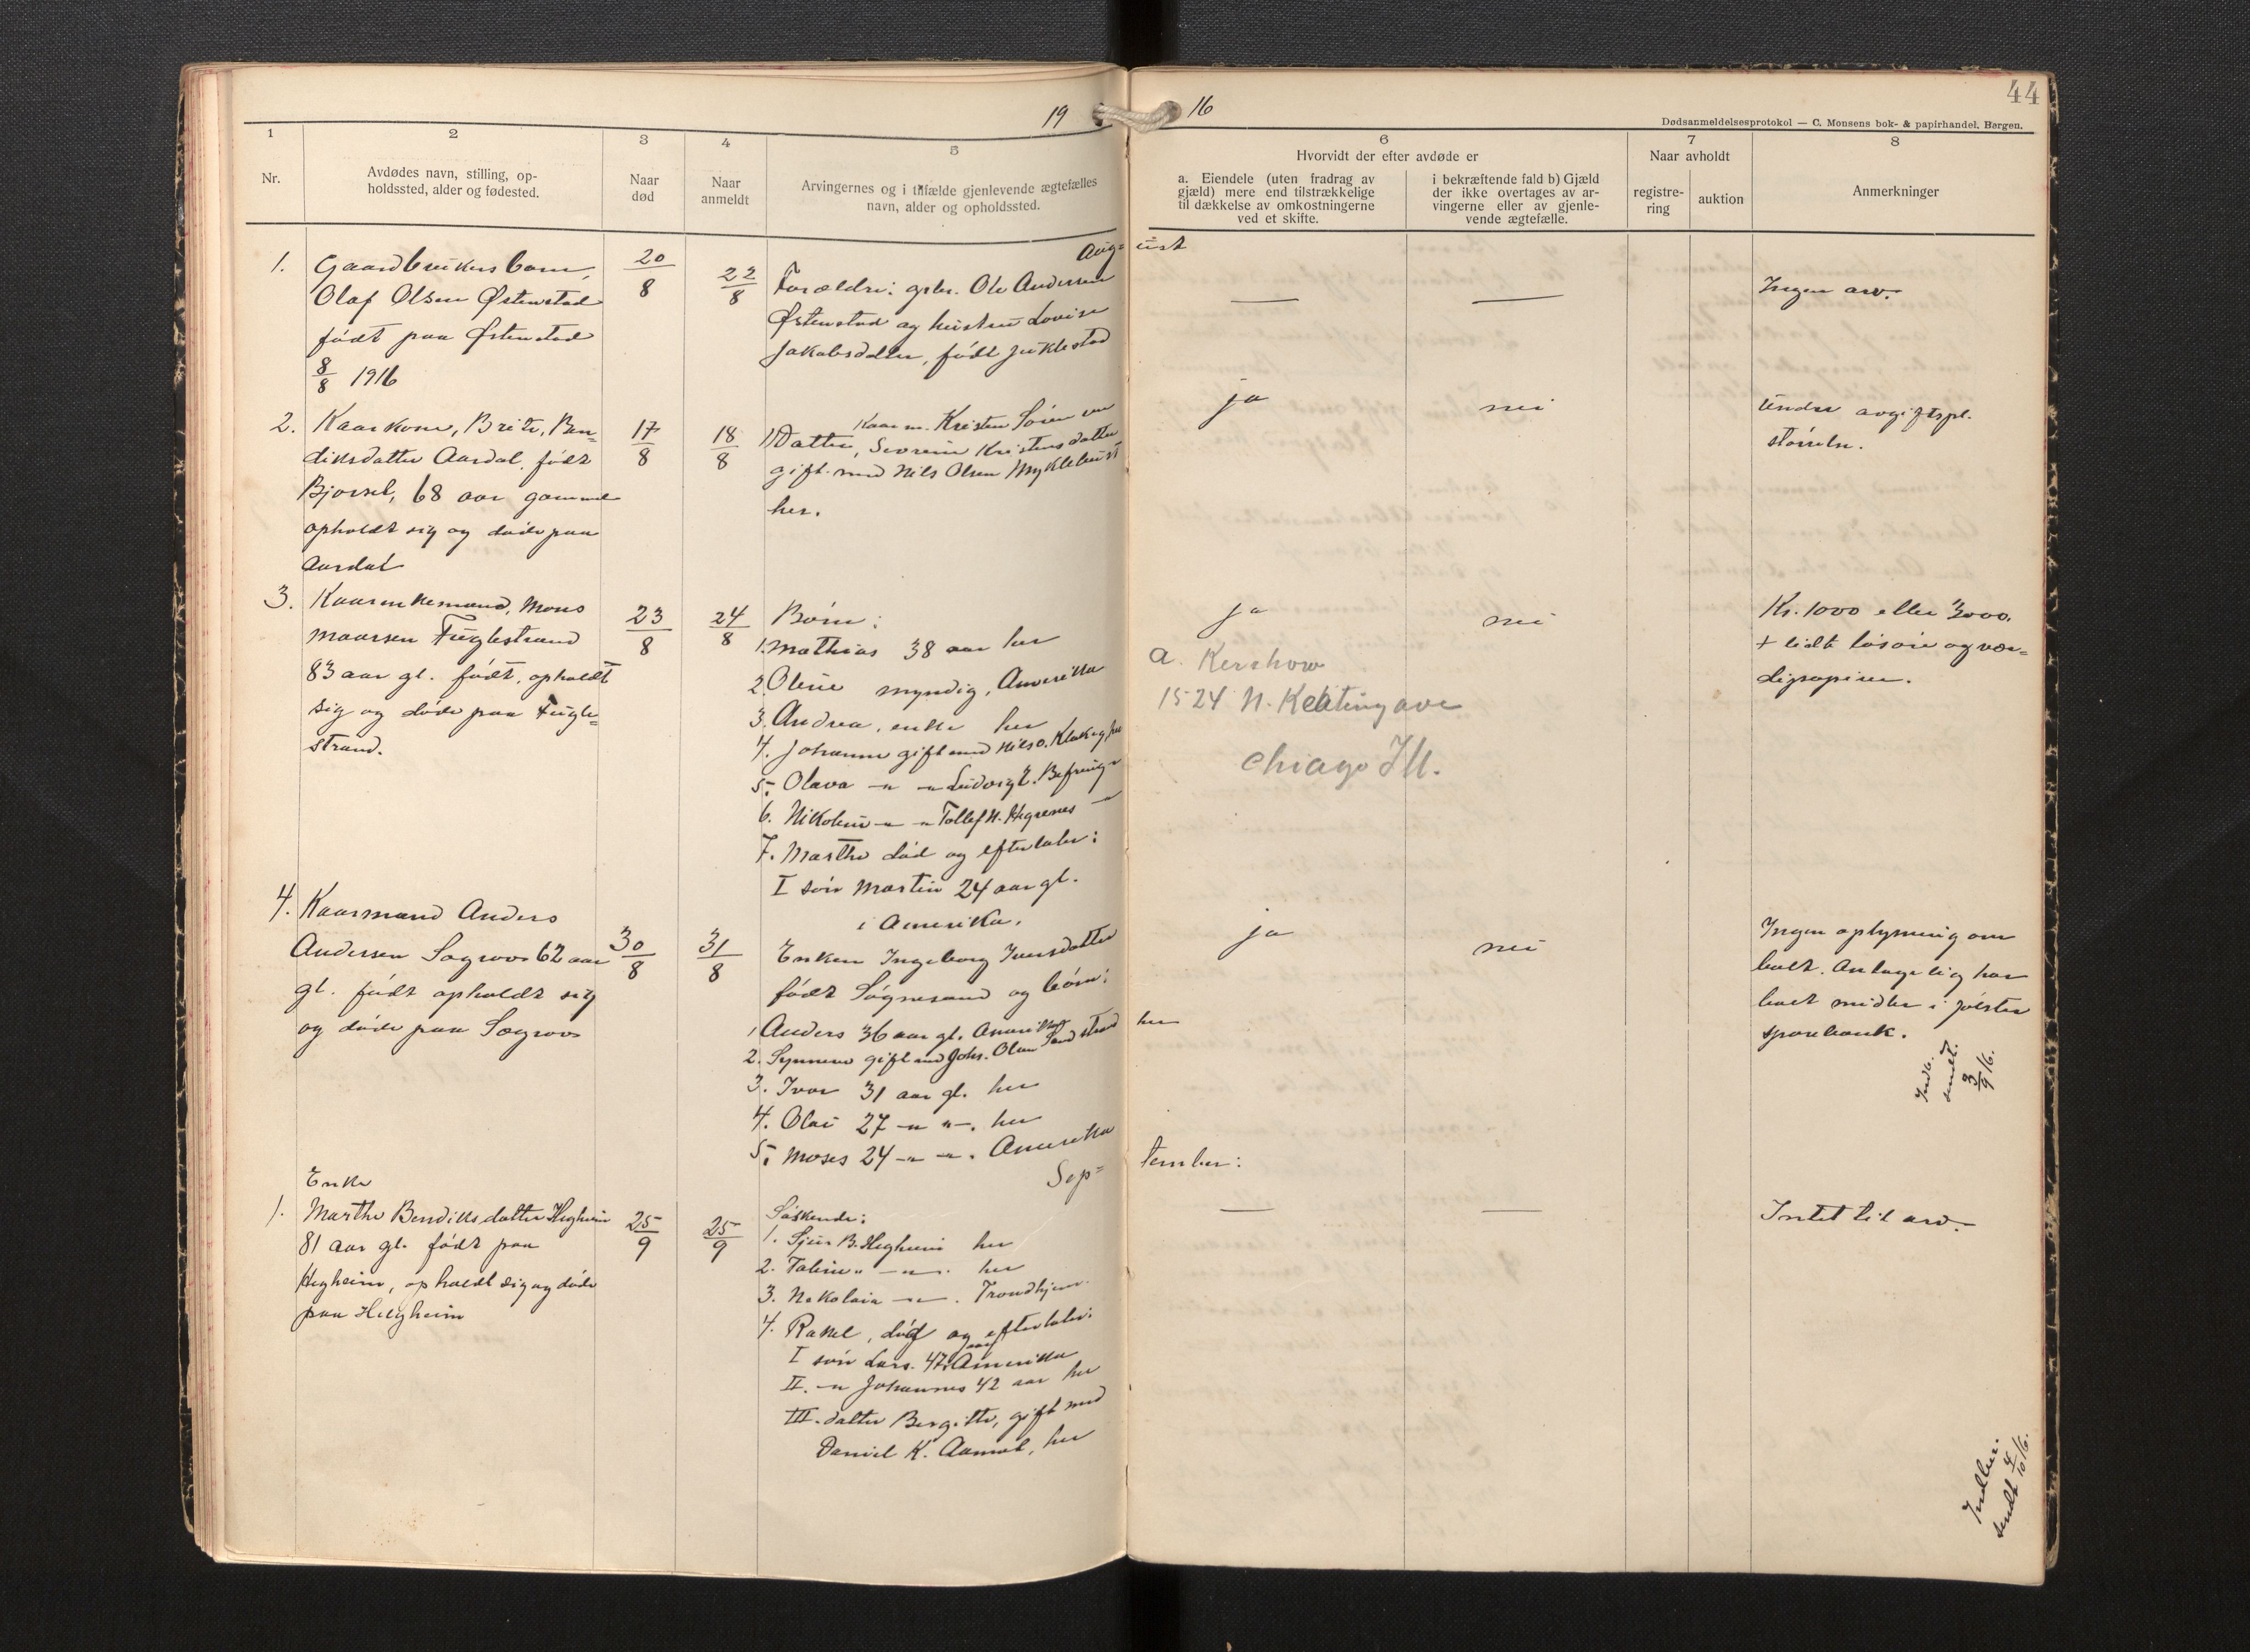 19 16
44
Dødsanmeldelsesprotokol — C. Monsens bok- & papirhandel, Bergen.
1
Nr.
2
Avdødes navn, stilling, op-
holdssted, alder og fødested.
3
Naar
død
4
Naar
anmeldt
5
Arvingernes og i tilfælde gjenlevende ægtefælles
navn, alder og opholdssted.
6
Hvorvidt der efter avdøde er
a. Eiendele (uten fradrag av
gjæld) mere end tilstrækkelige
til dækkelse av omkostningerne
ved et skifte.
i bekræftende fald b) Gjæld
der ikke overtages av ar-
vingerne eller av gjenle-
vende ægtefælle.
7
Naar avholdt
registre-
ring
auktion
8
Anmerkninger
Aug= ust
1.
Gaardbrukers barn,
Olaf Olsen Østenstad
født paa Østenstad
8/8 1916
20/8
22/8
Forældre: gbr. Ole Andersen
Østenstad og hustru Lovise
Jakobsdatter, født Juklestad
— —
Ingen arv.
2.
Kaarkone, Brite, Ben=
diksdatter Aardal, født
Bjørset, 68 aar gammel
opholdt sig og døde paa
Aardal
17/8
18/8
Kaarm. Kristen
1) Datter, Severine Kristensdatter
gift med Nils Olsen Myklebust
her.
ja
nei
Under avgiftspl.
størrelse.
3.
Kaarenkemand, Mons
Monsen Fuglestrand
83 aar gl. født, opholdt
sig og døde paa Fugle=
strand.
23/8
24/8
Børn:
1. Mathias 38 aar her
2. Oline myndig, Amerika
3. Andrea, enke her
4. Johanne gift med Nils O. Klakegg, her
5. Olava —"— Ludvig L. Befring "
6. Nikoline —"— Tollef N. Hegrenes —"
7. Marthe død og efterlater:
I søn Martin 24 aar gl.
i Amerika.
ja
nei
A. Kershow
1524 N. Keating ave
Chiago Ill.
Kr. 1000 eller 3000.
+ lidt løsøre og vær=
dipapirer.
4.
Kaarmand Anders
Andersen Søgrov 62 aar
gl. født opholdt sig
og døde paa Søgrov
30/8
31/8
Enken Ingeborg Iversdatter
født Søgnesand og børn:
1 Anders 36 aar gl. Amerika
2. Synneve gift med Johs. Olsen Sandstrand her
3. Ivar 31 aar gl. her
4. Olai 27 —"— "—. her
5. Moses 24 —"— —"—. Amerika
ja
nei
Ingen oplysning om
boet. Antagelig har
boet midler i Jølster
sparebank.
Indb.
sendt.
3/9 16.
Sep= tember:
1.
Enke
Marthe Bendiksdatter Hegheim
81 aar gl. født paa
Hegheim, opholdt sig og døde
paa Helgheim
25/9
25/9
Søskende:
1. Sjur B. Hegheim her
2. Taline " —"—. her
3. Nikolai —"—. Trondhjem
4. Rakel, død og efterlater:
I søn Lars. 47 aar Amerika
II. —" Johannes 42 aar her
III. datter Bergitte, gift med
Daniel K. Aamot, her
— —
Intet til arv.—
Indber.
sendt 4/10 16.